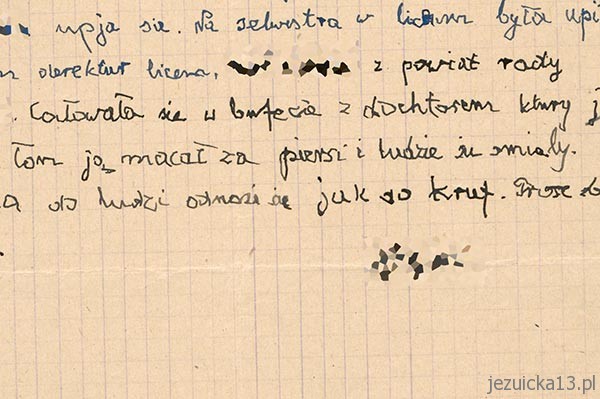 upja sie. Na selwistra w liceum była upi
m derektur licena, z powiat rady
. Całowała sie w bufecie z dochtorem ktury j
tom ją macał za piersi i ludzie sie smiały.
a do ludzi odnosi sie jak do kruf. Prose
jezuicka13.pl